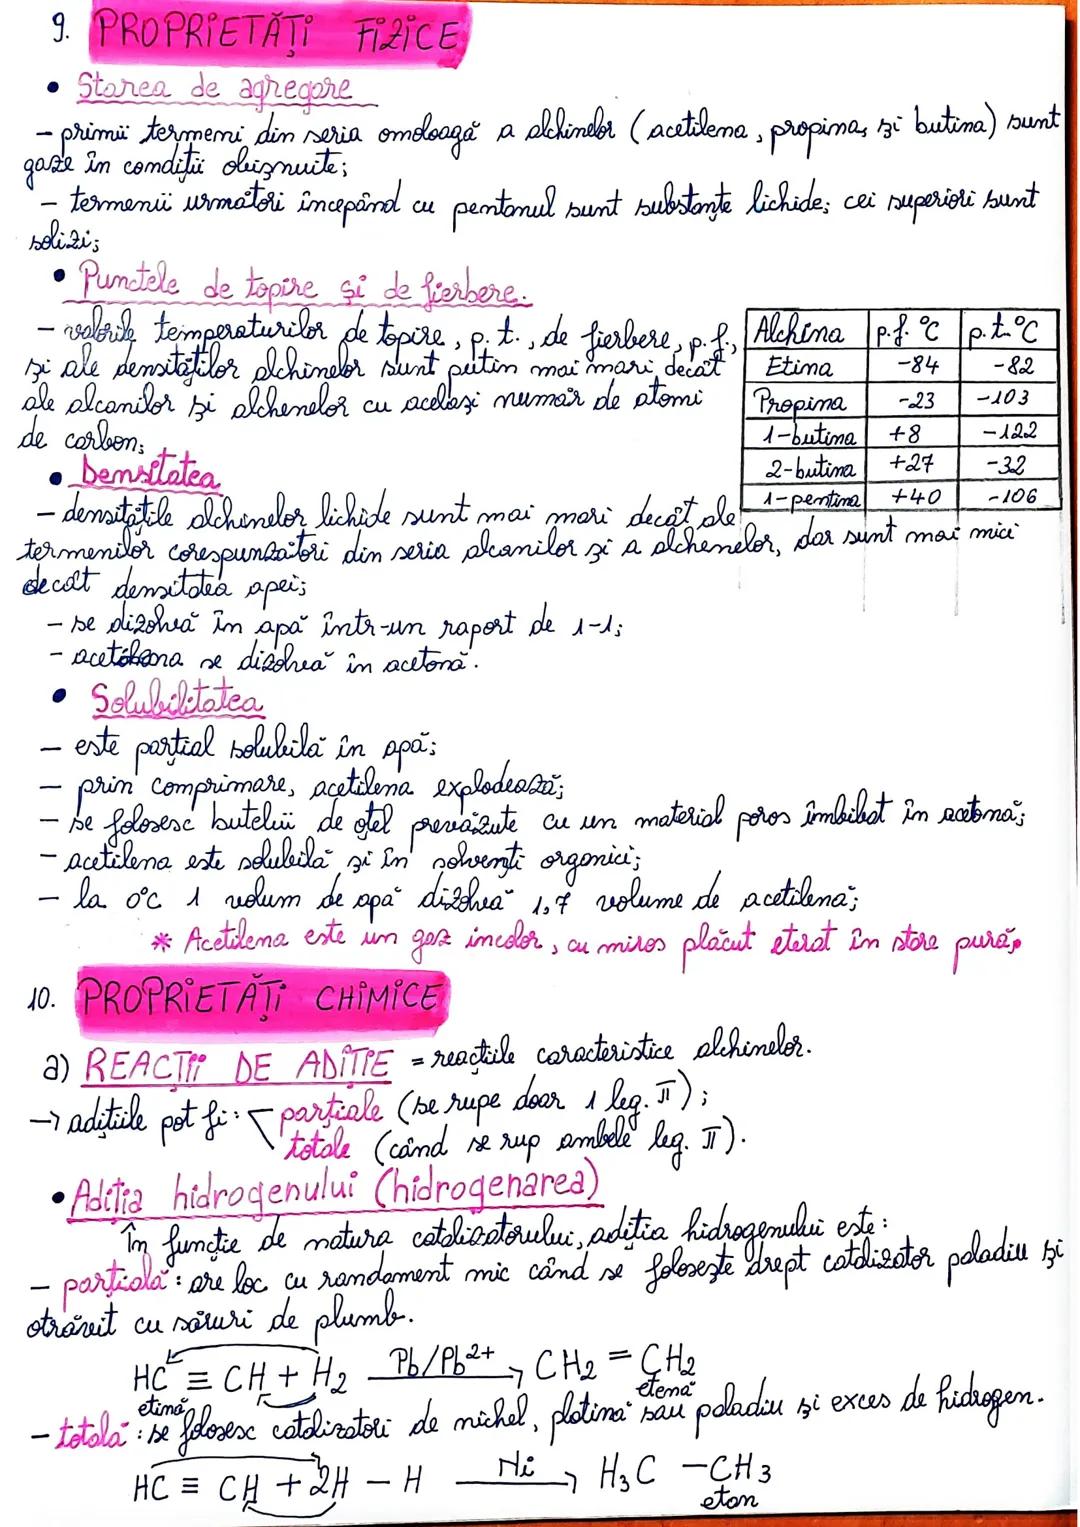 9. PROPRIETĂȚI FIZICE
• Starea de agregare
- primii termeni din seria omoloagă a alchinelor (acetilena, propina, și butina) sunt
gaze în condiții obișnuite;
- termenii următori începând cu pentanul sunt substanțe lichide; cei superiori sunt
solizi;
• Punctele de topire și de fierbere.
- valorile temperaturilor de topire, p.t., de fierbere, p.f.,
și ale densităților alchinelor sunt puțin mai mari decât
ale alcanilor și alchenelor cu același număr de atomi
de carbon;
Alchina p.f. °C p.t. °C
Etina -84 -82
Propina -23 -103
1-butina +8 -122
2-butina +27 -32
1-pentina +40 -106
• Densitatea
- densitățile alchinelor lichide sunt mai mari decât ale
termenilor corespunzători din seria alcanilor și a alchenelor, dar sunt mai mici
decât densitatea apei;
- se dizolvă în apă într-un raport de 1-1;
- acetilena se dizolvă în acetonă.
• Solubilitatea
- este parțial solubilă în apă;
- prin comprimare, acetilena explodează;
- se folosesc butelii de oțel prevăzute cu un material poros îmbibat în acetonă;
- acetilena este solubilă și în solvenți organici;
- la 0°C 1 volum de apă dizolvă 1,7 volume de acetilenă;
* Acetilena este un gaz incolor, cu miros plăcut eterat în stare pură.
10. PROPRIETĂȚI CHIMICE
a) REACȚII DE ADIȚIE = reacțiile caracteristice alchinelor.
→ adițiile pot fi: parțiale (se rupe doar 1 leg. π);
totale (când se rup ambele leg. π).
• Adiția hidrogenului (hidrogenarea)
În funcție de natura catalizatorului, adiția hidrogenului este:
- parțială: are loc cu randament mic când se folosește drept catalizator paladiu și
otrăvit cu săruri de plumb.
HC ≡ CH + H2 Pb/Pb2+ → CH2 = CH2
etină etenă
- totală: se folosesc catalizatori de nichel, platină sau paladiu și exces de hidrogen.
HC ≡ CH + 2H - H Ni → H3C - CH3
etan